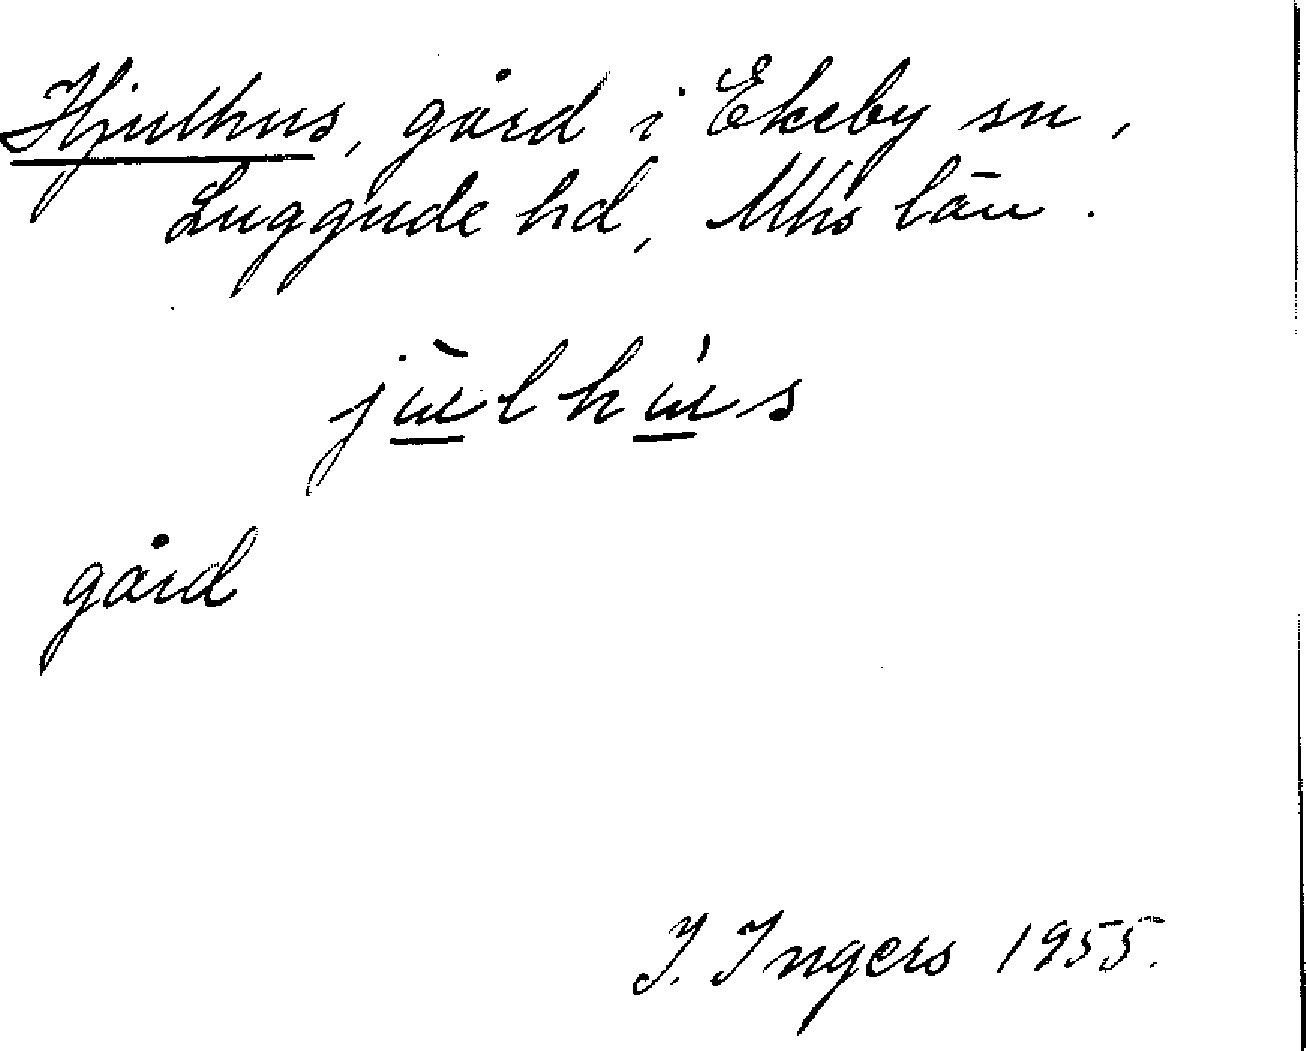 Hjulhus, gård i Ekeby sn,
Luggude hd, Mhs län.
jùlhús
gård
I. Ingers 1955.